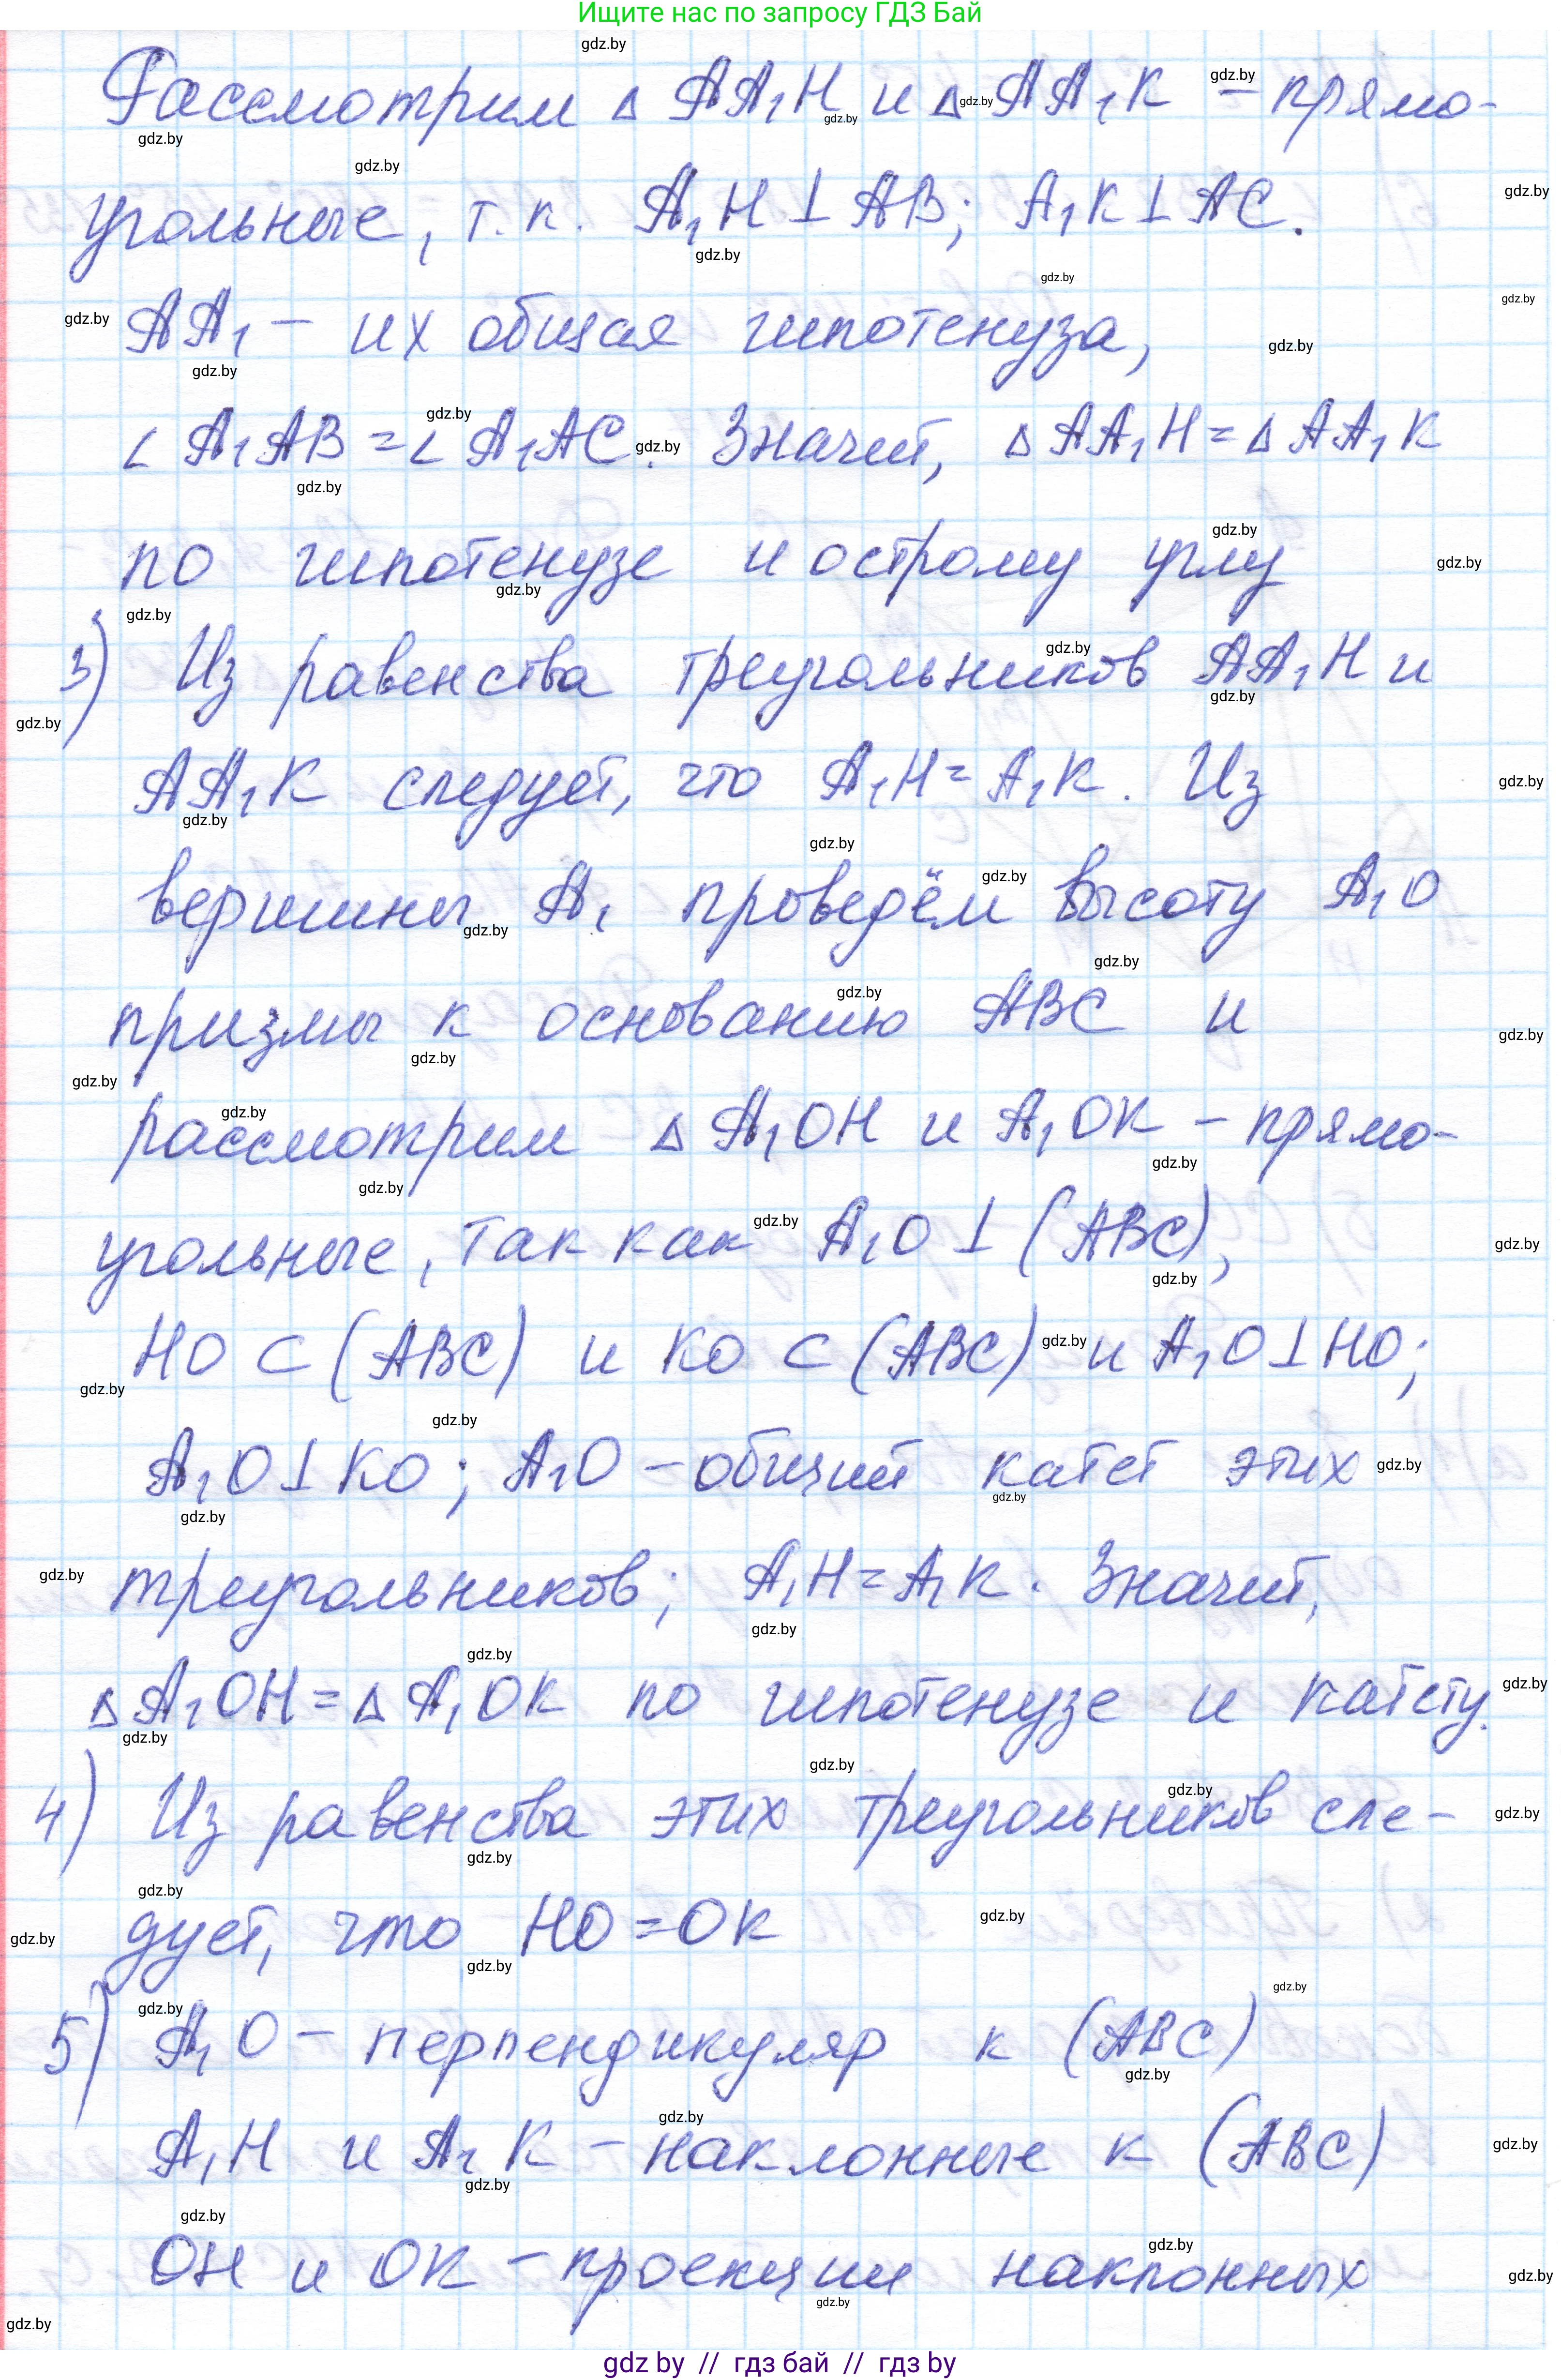 Ищите нас по запросу ГДЗ Бай
Рассмотрим △ AA₁H и △ AA₁K – прямо-
угольные, т.к. A₁H ⊥ AB; A₁K ⊥ AC.
AA₁ – их общая гипотенуза,
∠ A₁AB = ∠ A₁AC. Значит, △ AA₁H = △ AA₁K
по гипотенузе и острому углу
3) Из равенства треугольников AA₁H и
AA₁K следует, что A₁H = A₁K. Из
вершины A₁ проведём высоту A₁O
призмы к основанию ABC и
рассмотрим △ A₁OH и A₁OK – прямо-
угольные, так как A₁O ⊥ (ABC),
HO ⊂ (ABC) и KO ⊂ (ABC) и A₁O ⊥ HO;
A₁O ⊥ KO; A₁O – общий катет этих
треугольников; A₁H = A₁K. Значит,
△ A₁OH = △ A₁OK по гипотенузе и катету.
4) Из равенства этих треугольников сле-
дует, что HO = OK
5) A₁O – перпендикуляр к (ABC)
A₁H и A₁K – наклонные к (ABC)
OH и OK – проекции наклонных
gdz by // гдз бай // гдз by